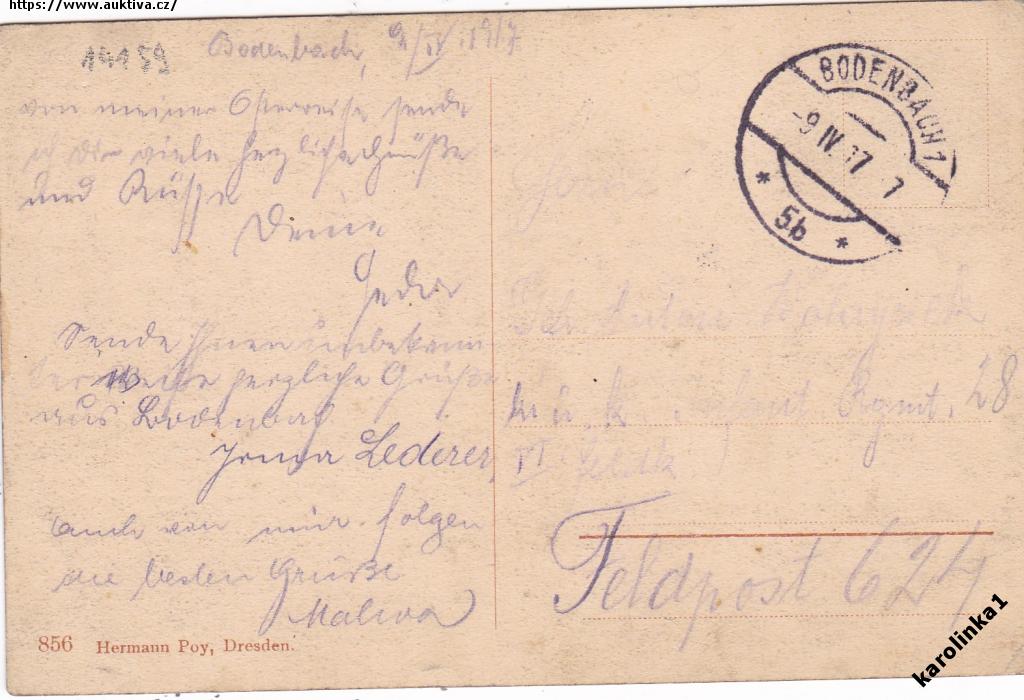 https://www.auktiva.cz/
14159
Bodenbach, 9/IV. 1917
von meiner Osterreise sende
ich Dir viele herzliche Grüße
und Küsse
Deine
Sende Ihnen unbekann
ter Weise herzliche Grüße
aus Bodenbach
Lederer
auch von mir folgen
die besten Grüße
856 Hermann Poy, Dresden.
BODENBACH 1
-9 IV. 17 7
* 5b *
Anton
k. u. k. Rgmt. 28
VI Feldk
Feldpost 624
karolinka1